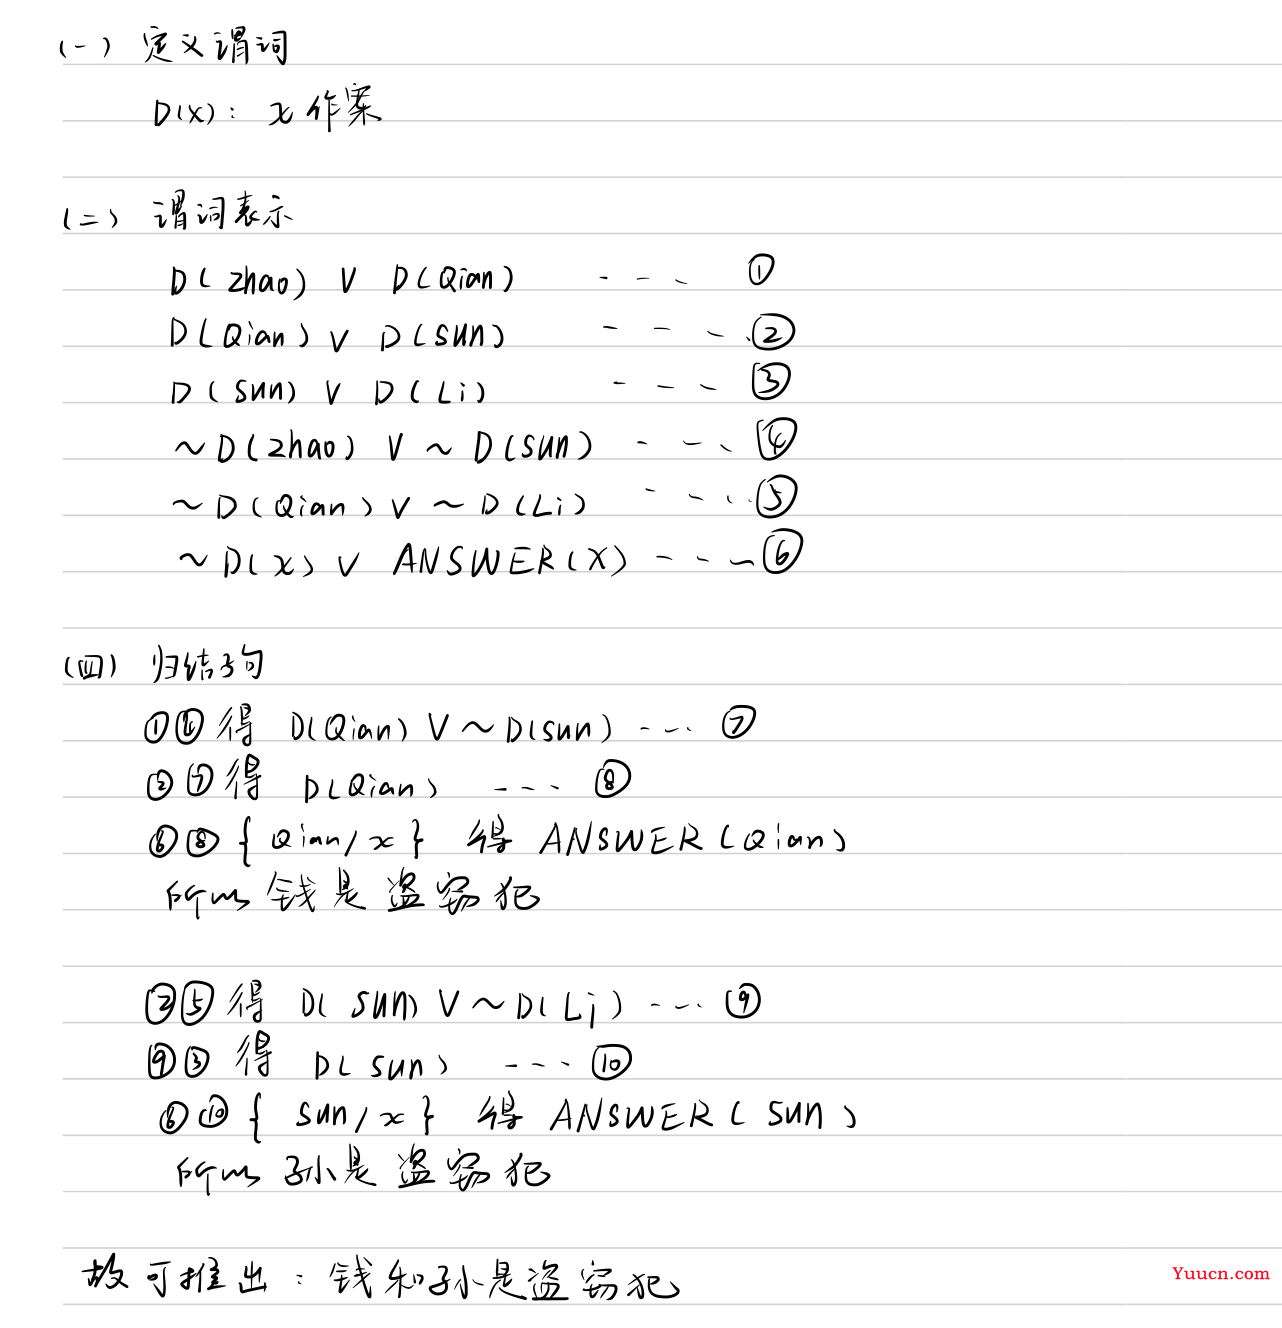 (一) 定义谓词
D(X): x 作案
(二) 谓词表示
D(zhao) ∨ D(Qian) --- ①
D(Qian) ∨ D(sun) ---- ②
D(sun) ∨ D(Li) --- ③
~D(zhao) ∨ ~D(sun) --- ④
~D(Qian) ∨ ~D(Li) ---- ⑤
~D(x) ∨ ANSWER(X) --- ⑥
(四) 归结子句
①④得 D(Qian) ∨ ~D(sun) --- ⑦
②⑦得 D(Qian) --- ⑧
⑥⑧{Qian/x} 得 ANSWER(Qian)
所以钱是盗窃犯
②⑤得 D(sun) ∨ ~D(Li) --- ⑨
⑨③得 D(sun) --- ⑩
⑥⑩{sun/x} 得 ANSWER(sun)
所以孙是盗窃犯
故可推出：钱和孙是盗窃犯
Yuucn.com